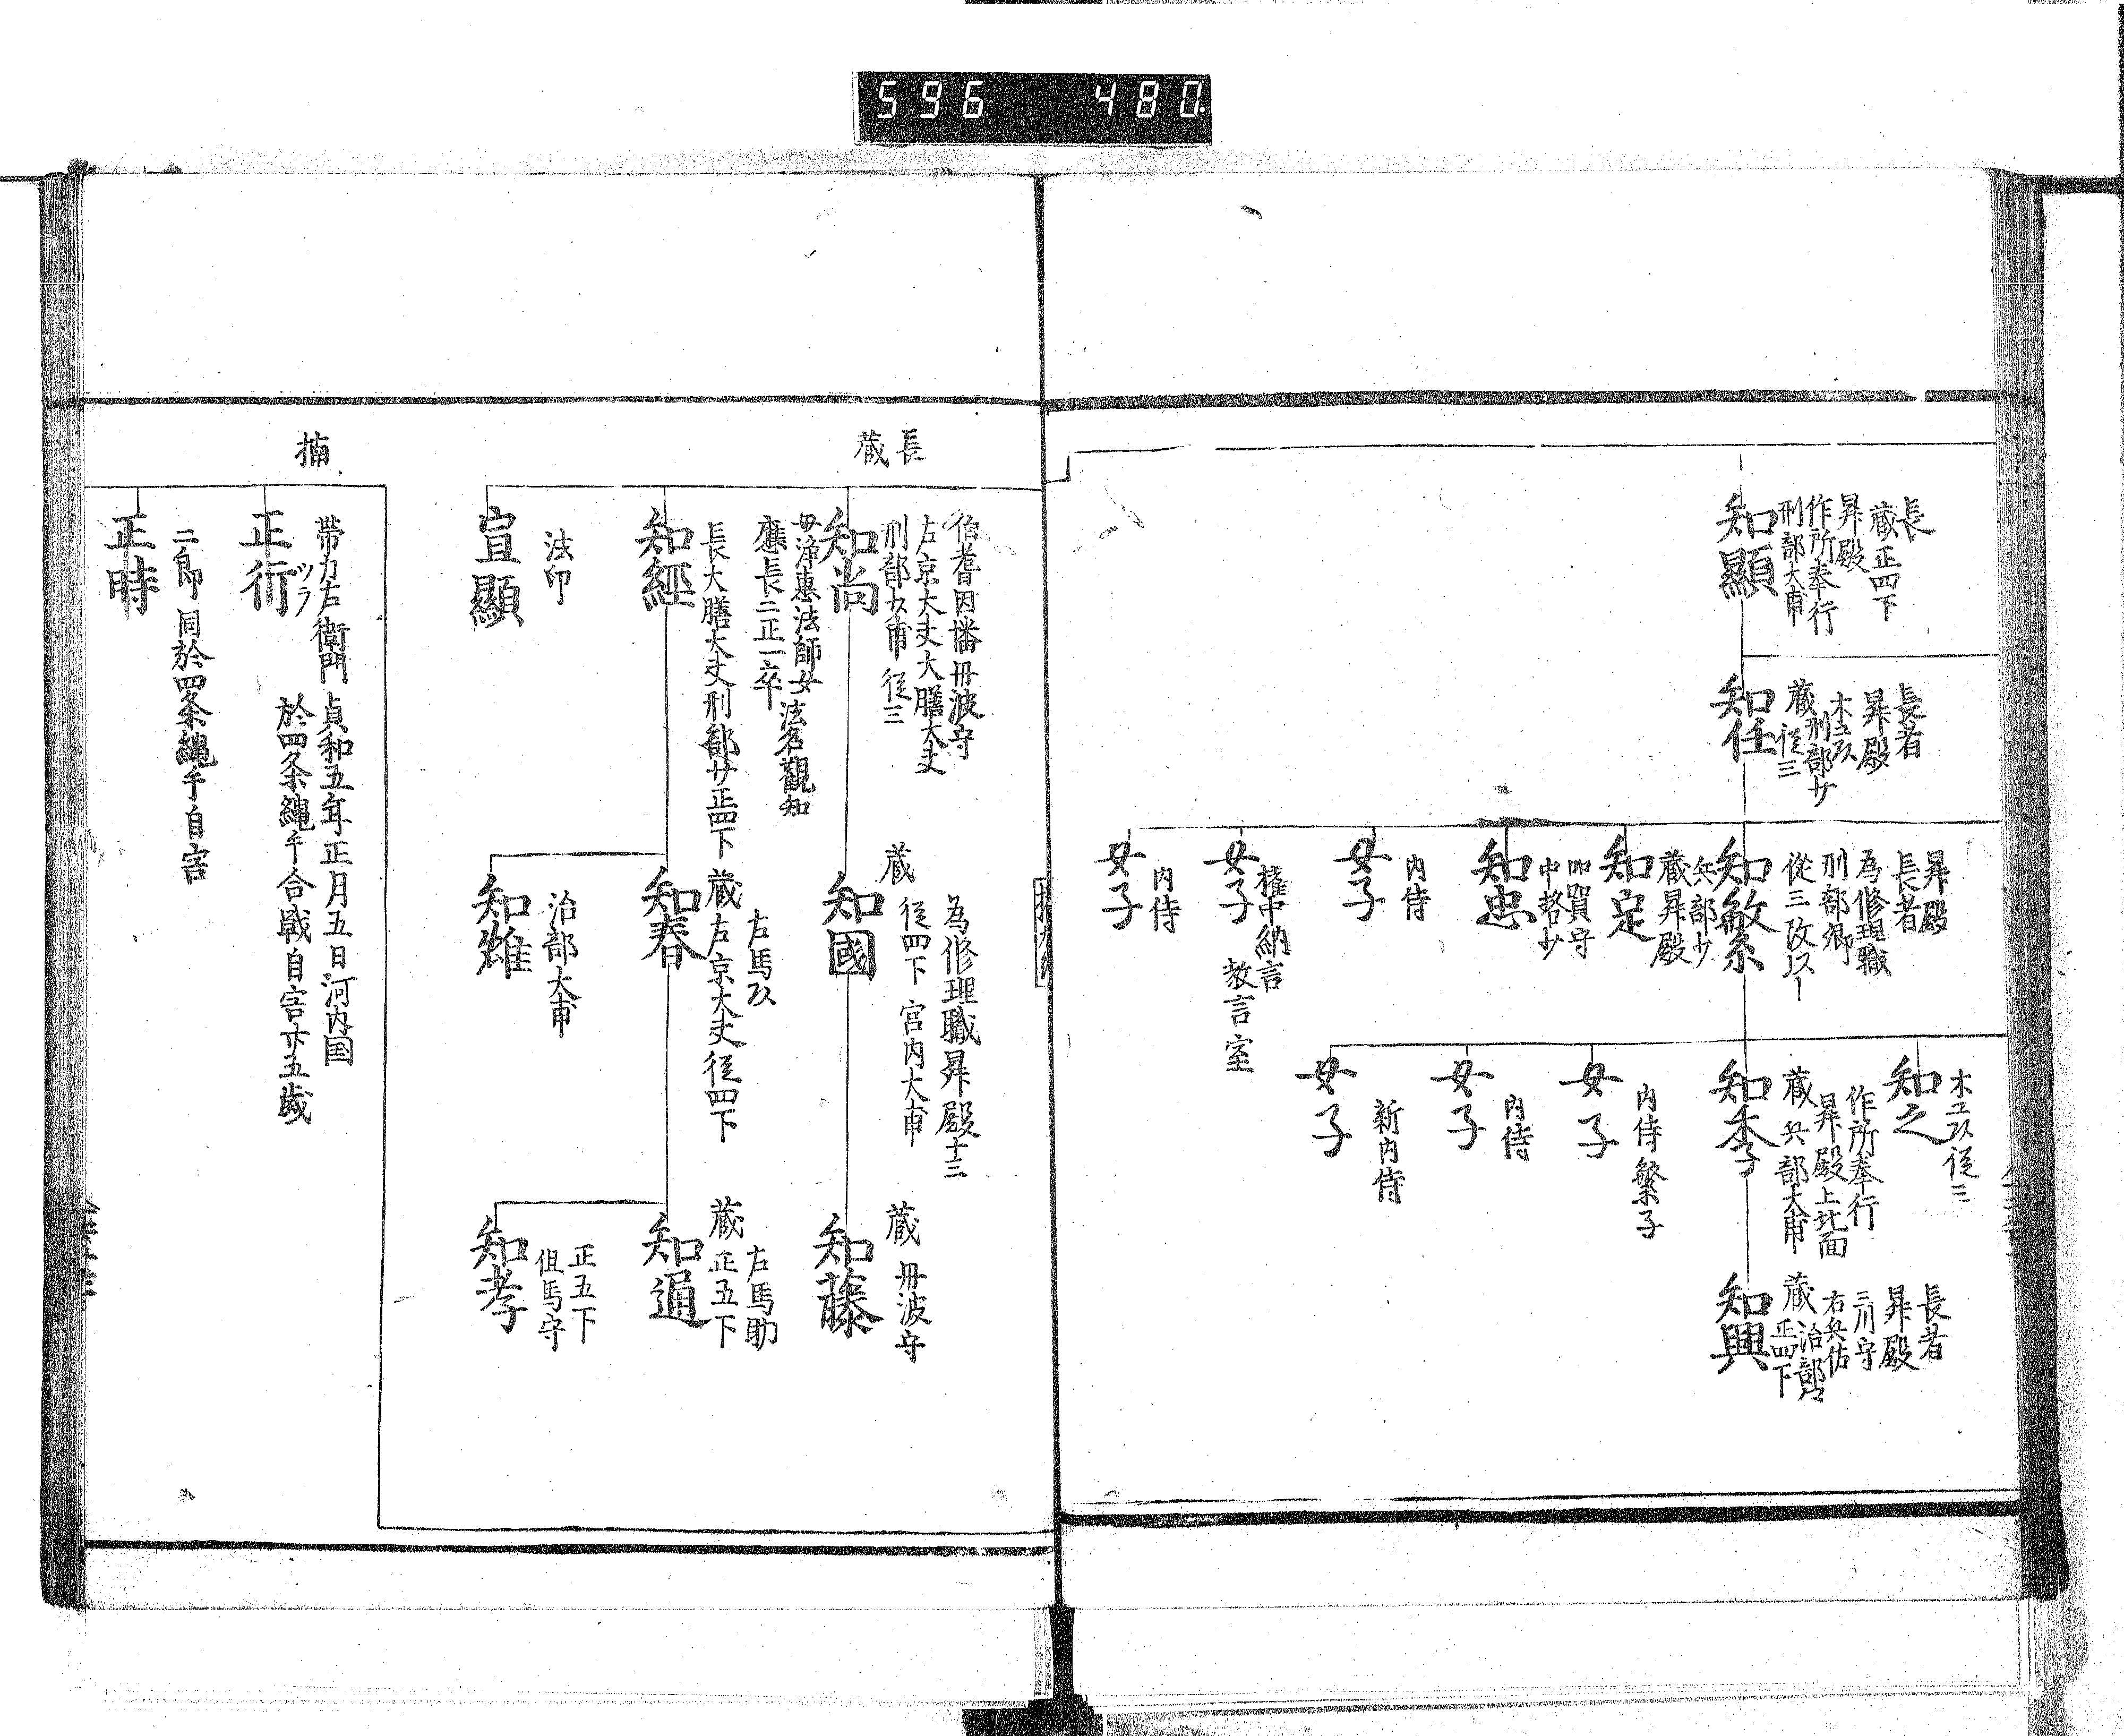 596 480
長
蔵 正四下
昇殿
作所奉行
刑部大甫
知顯
長者
昇殿
木工以
刑部少
蔵 従三
知任
昇殿
長者
為修理職
刑部卿
従三
知敏系
兵部少
蔵昇殿
知定
加賀守
中務少
知忠
内侍
女子
権中納言
教言室
女子
内侍
女子
木工以従三
知之
作所奉行
昇殿上北面
蔵 兵部大甫
知季
内侍繁子
女子
内侍
女子
新内侍
女子
長者
昇殿
三川守
右兵佐
治部
蔵 正四下
知興
長
蔵
伯耆因播丹波守
左京大夫大膳大夫
刑部大甫 従三
知尚
母浄恵法師女 法名觀知
應長二正一卒
為修理職昇殿十三
蔵 従四下 宮内大甫
知國
蔵 丹波守
知藤
長大膳大夫刑部少正四下
知經
左馬以
蔵左京大夫従四下
知春
左馬助
蔵 正五下
知通
法印
宣顯
治部大甫
知雄
正五下
但馬守
知孝
楠
帯刀左衛門 貞和五年正月五日河内国
於四条縄手合戦自害廿五歳
正行
ツラ
二郎 同於四条縄手自害
正時